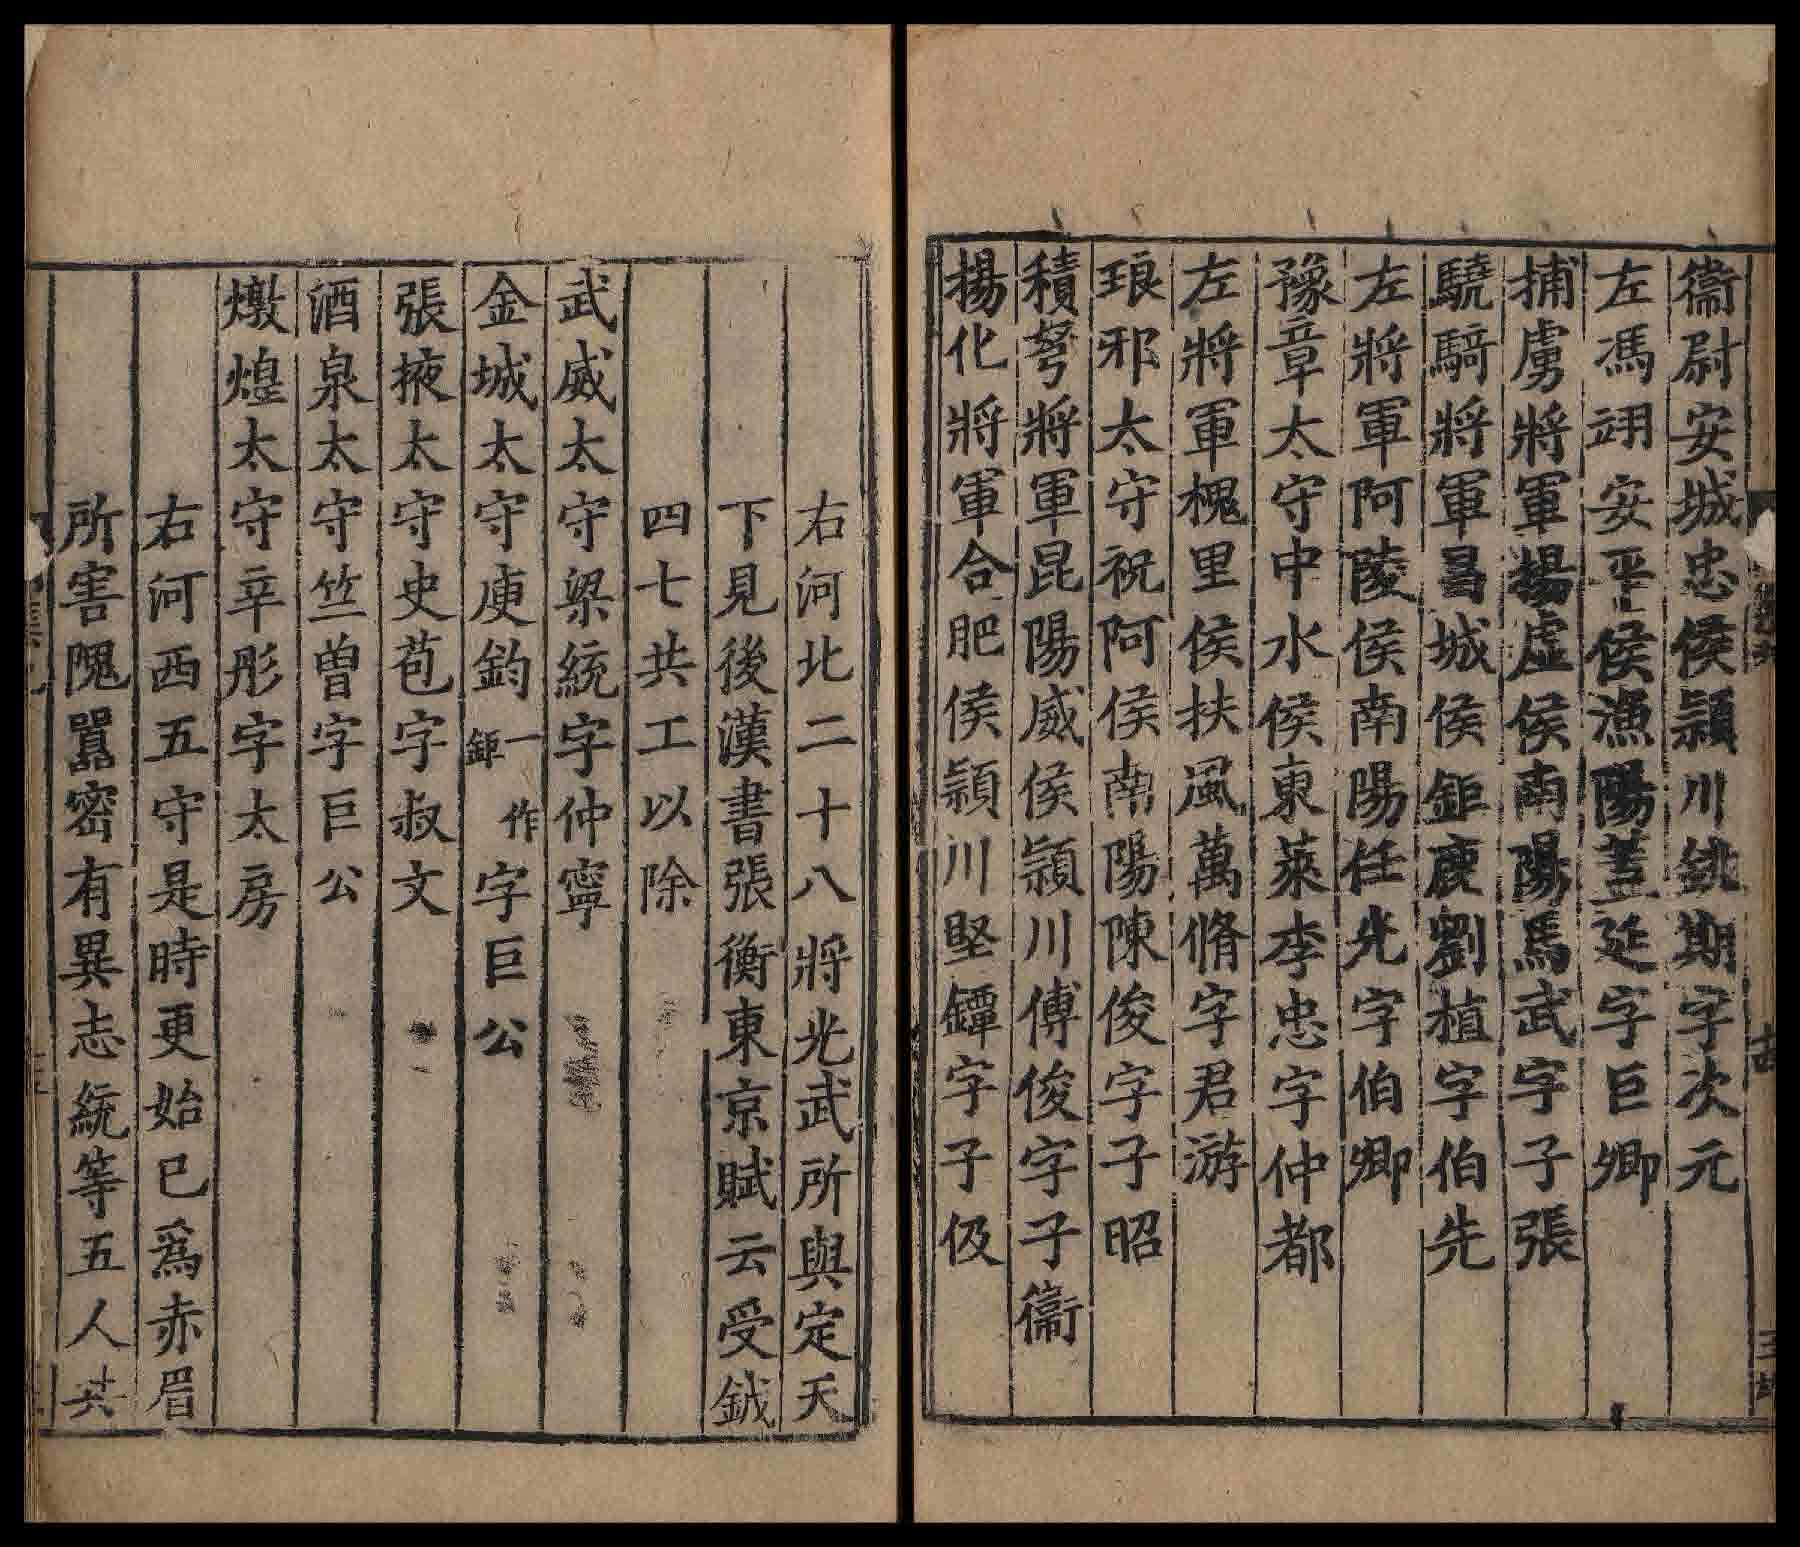 衞尉安城忠侯潁川銚期字次元
左馮翊安平侯漁陽蓋延字巨卿
捕虜將軍揚虛侯南陽馬武字子張
驍騎將軍昌城侯鉅鹿劉植字伯先
左將軍阿陵侯南陽任光字伯卿
豫章太守中水侯東萊李忠字仲都
左將軍槐里侯扶風萬脩字君游
琅邪太守祝阿侯南陽陳俊字子昭
積弩將軍昆陽威侯潁川傅俊字子衞
揚化將軍合肥侯潁川堅鐔字子伋
右河北二十八將光武所與定天
下見後漢書張衡東京賦云受鉞
四七共工以除
武威太守梁統字仲寧
金城太守庾鈞一作鉅字巨公
張掖太守史苞字叔文
酒泉太守竺曾字巨公
燉煌太守辛彤字太房
右河西五守是時更始已爲赤眉
所害隗囂密有異志統等五人共